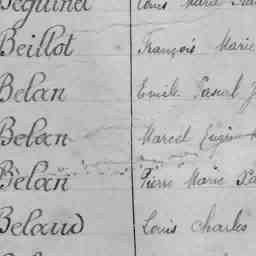 Beillot François Marie
Belan Emile Pascal J
Belan Marcel Eugèn
Belan Pierre Marie
Belaud Louis Charles